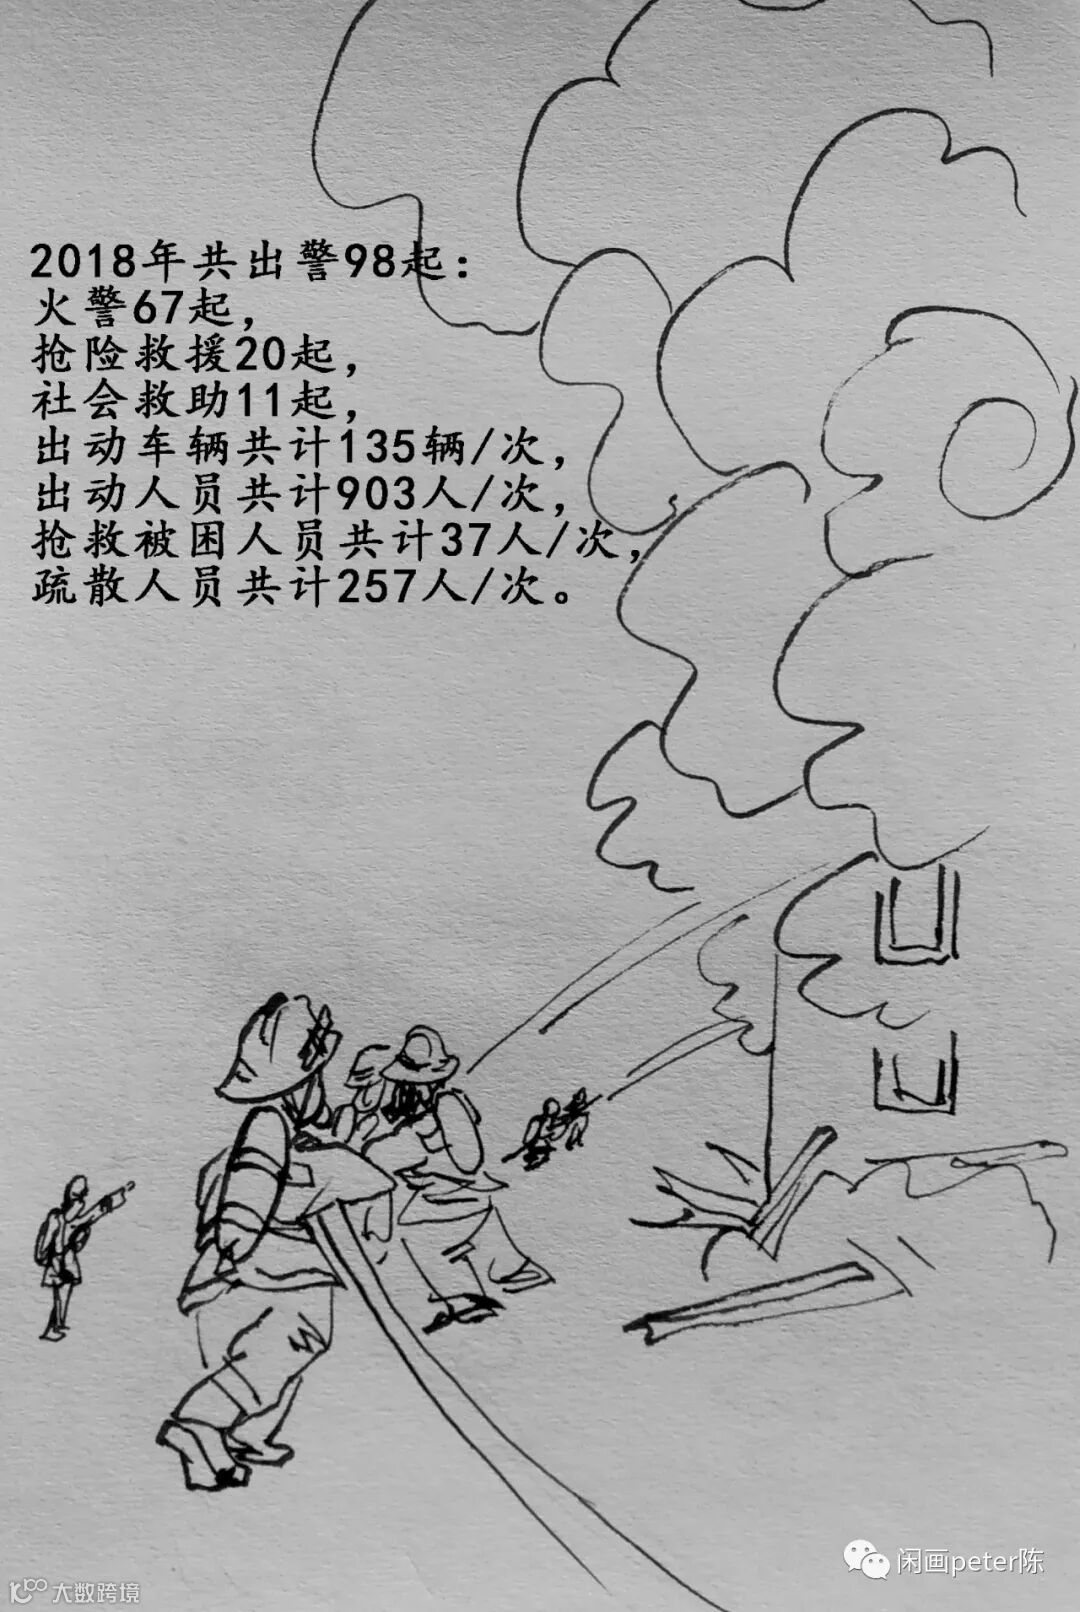 2018年共出警98起：
火警67起，
抢险救援20起，
社会救助11起，
出动车辆共计135辆/次，
出动人员共计903人/次，
抢救被困人员共计37人/次，
疏散人员共计257人/次。
闲画peter陈
大数跨境